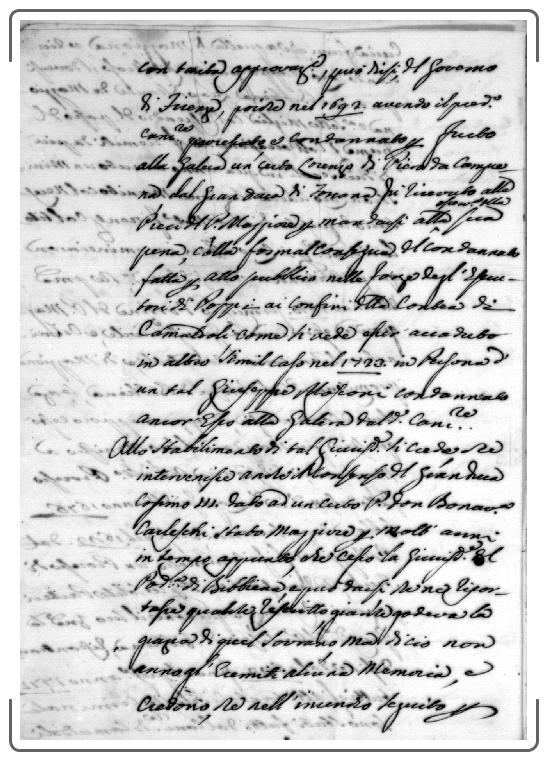 con tacita approvaz.e, può dirsi del Governo
di Firenze, poiche nel 1692. avendo il pred.o
Canc.re processato e condannato p furto
alla Galera un certo Lorenzo di Piero da Campre
na dal Gran Duca di Toscana fù ricevuto alle
Preci del P. Maggiore p mandarsi alla sua
pena, colla formal consegna del condannato
fatta p atto pubblico nelle forze degl' esecu-
tori di Poppi ai confini della Contea di
Camaldoli come si vede esser accaduto
in altro simil caso nel 1723. in Persona d
un tal Giuseppe condannato
ancor Esso alla Galera dal d.o Canc.re
Allo stabilimento di tal Giurisd.e si crede che
intervenisse anche il Consenso del Gran Duca
Cosimo III. dato ad un certo P. Don Bonav.a
stato Maggiore p molt' anni
in tempo appunto che cessò la Giurisd.e del
Pod.tà di Bibbiena e può darsi che ne ripor-
tasse qualche rescritto giacche godeva la
grazia di quel Sovrano ma di ciò non
anno gl' Eremiti alcuna Memoria, e
credono, che nell' incendio seguito